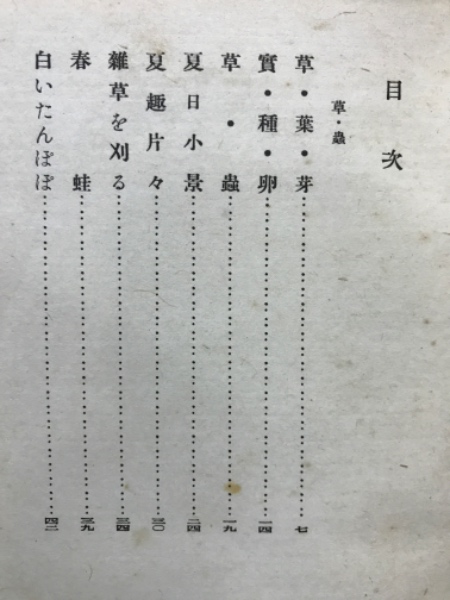 目次
草・蟲
草・葉・芽……七
實・種・卵……一四
草・蟲……一九
夏日小景……二四
夏趣片々……三〇
雜草を刈る……三四
春蛙……三九
白いたんぽぽ……四二